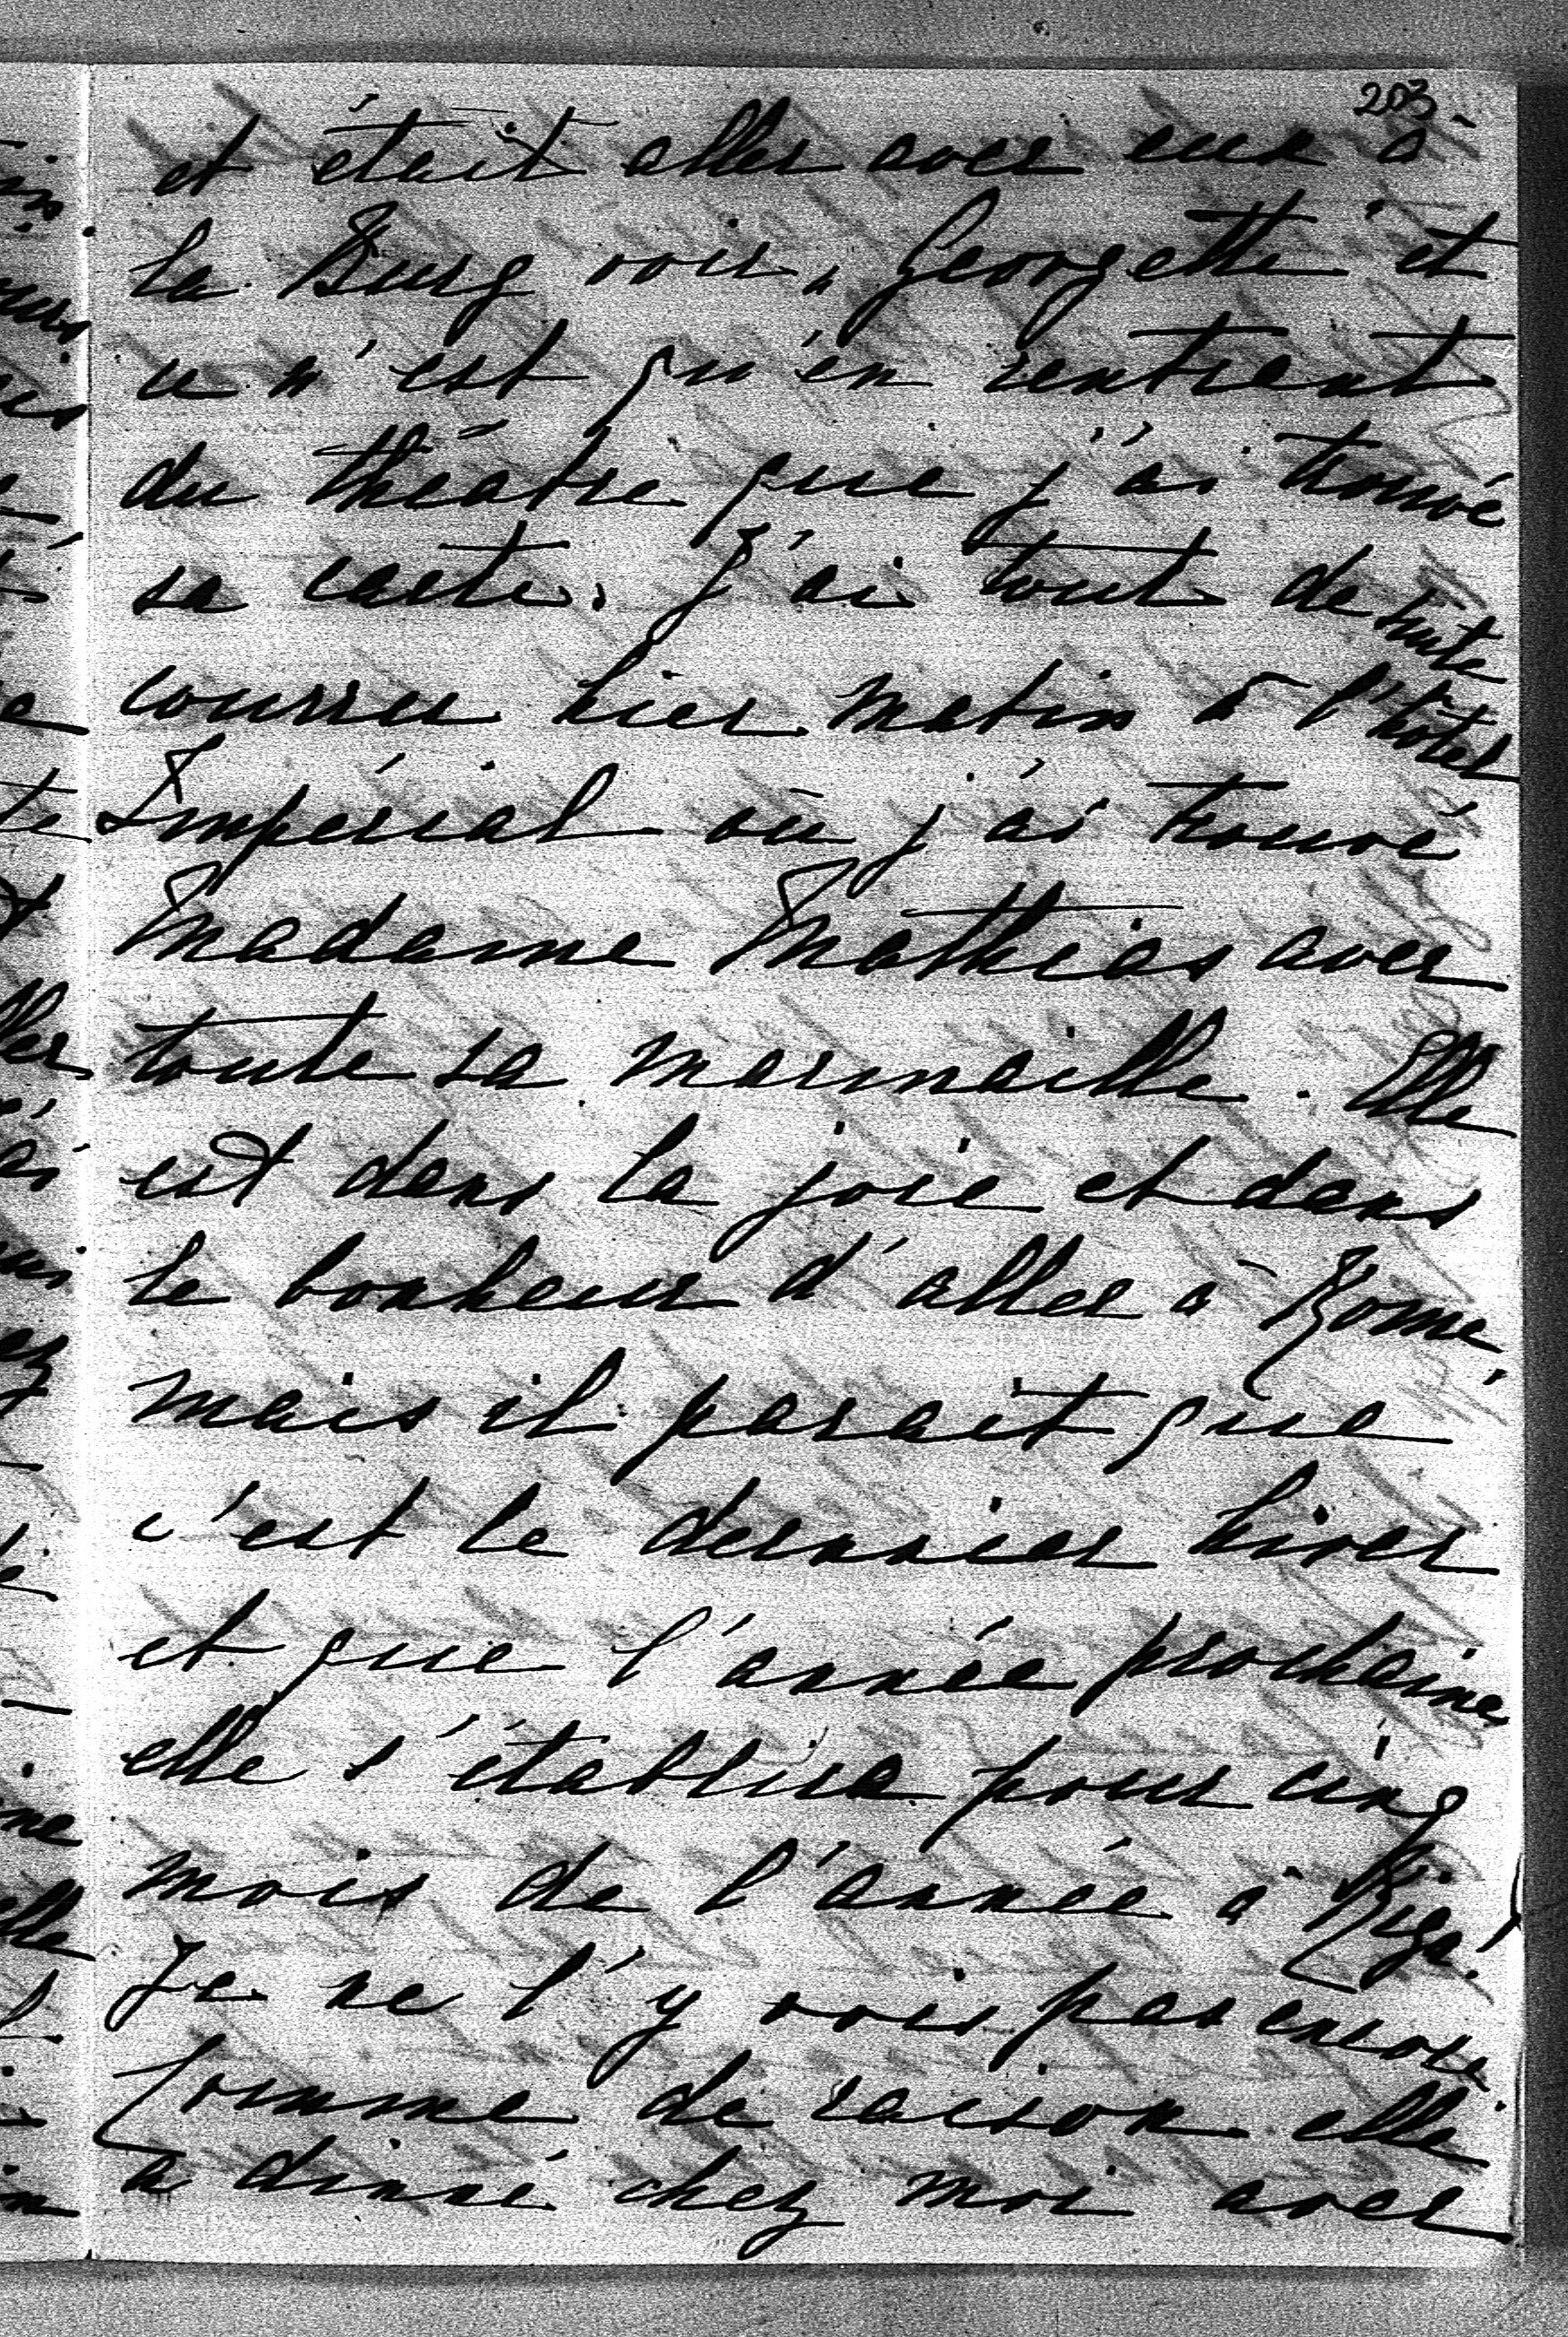 203
et était aller avec eux à
la Burg voir, Georgette et
ce n'est qu'en rentrant
du théâtre que j'ai trouvé
sa carte. J'ai tout de suite
courrer hier matin à l'hôtel
Impérial où j'ai trouvé
Madame Mathias avec
toute sa marmaille. Elle
est dans la joie et dans
le bonheur d'aller à Rome,
mais il parait que
c'est le dernier hiver
et que l'année prochaine
elle s'établira pour cinq
mois de l'année à Riga!
Je ne l'y vois pas encore
Comme de raison elle
a dinné chez moi avec